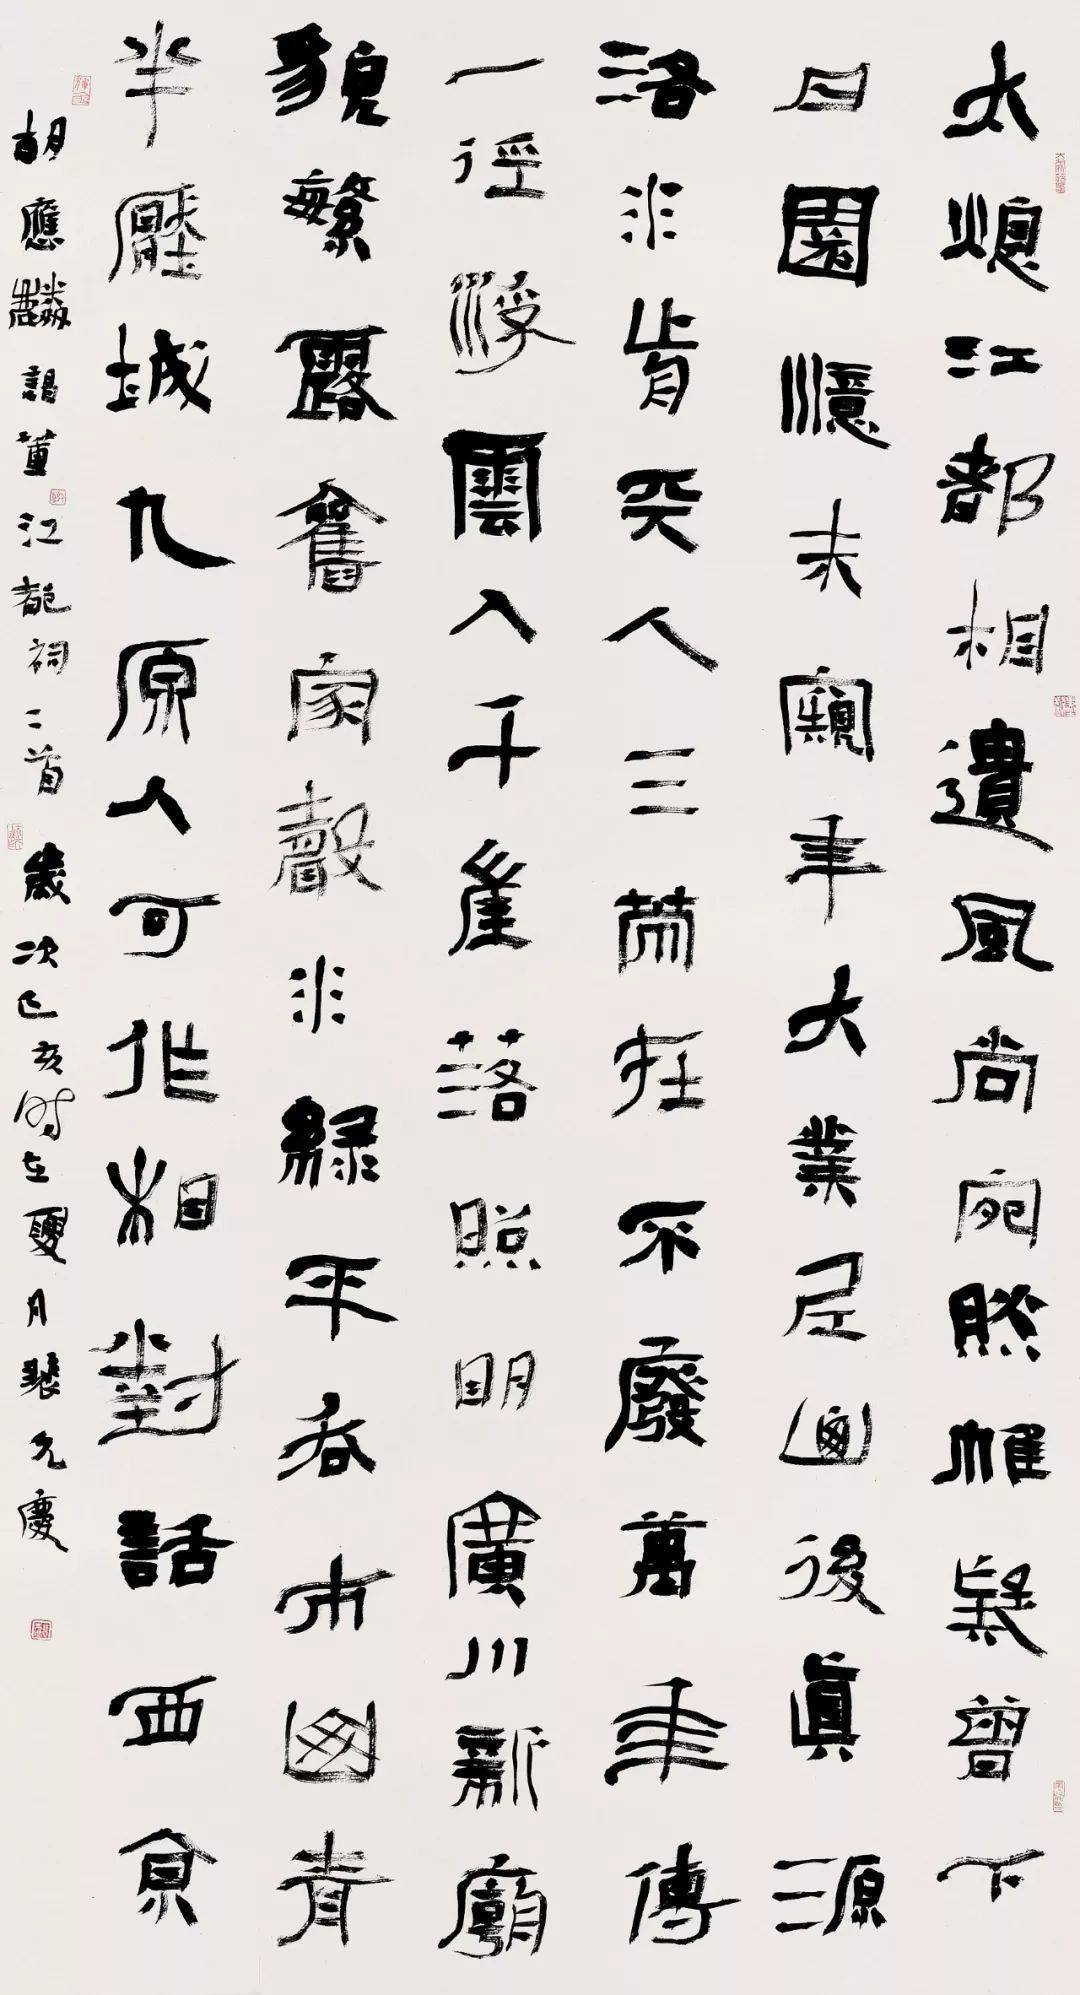 太息江都相遺風尚宛然帷疑曾下
日園憶未窺年大業尼山後真源
洛水前天人三策在不廢萬年傳
一徑浮雲入千崖落照明廣川新廟
貌繁露舊家聲水綠平吞市山青
半壓城九原人可作相對話西京
胡應麟謁董江都祠二首 歲次己亥時在夏月裴允慶